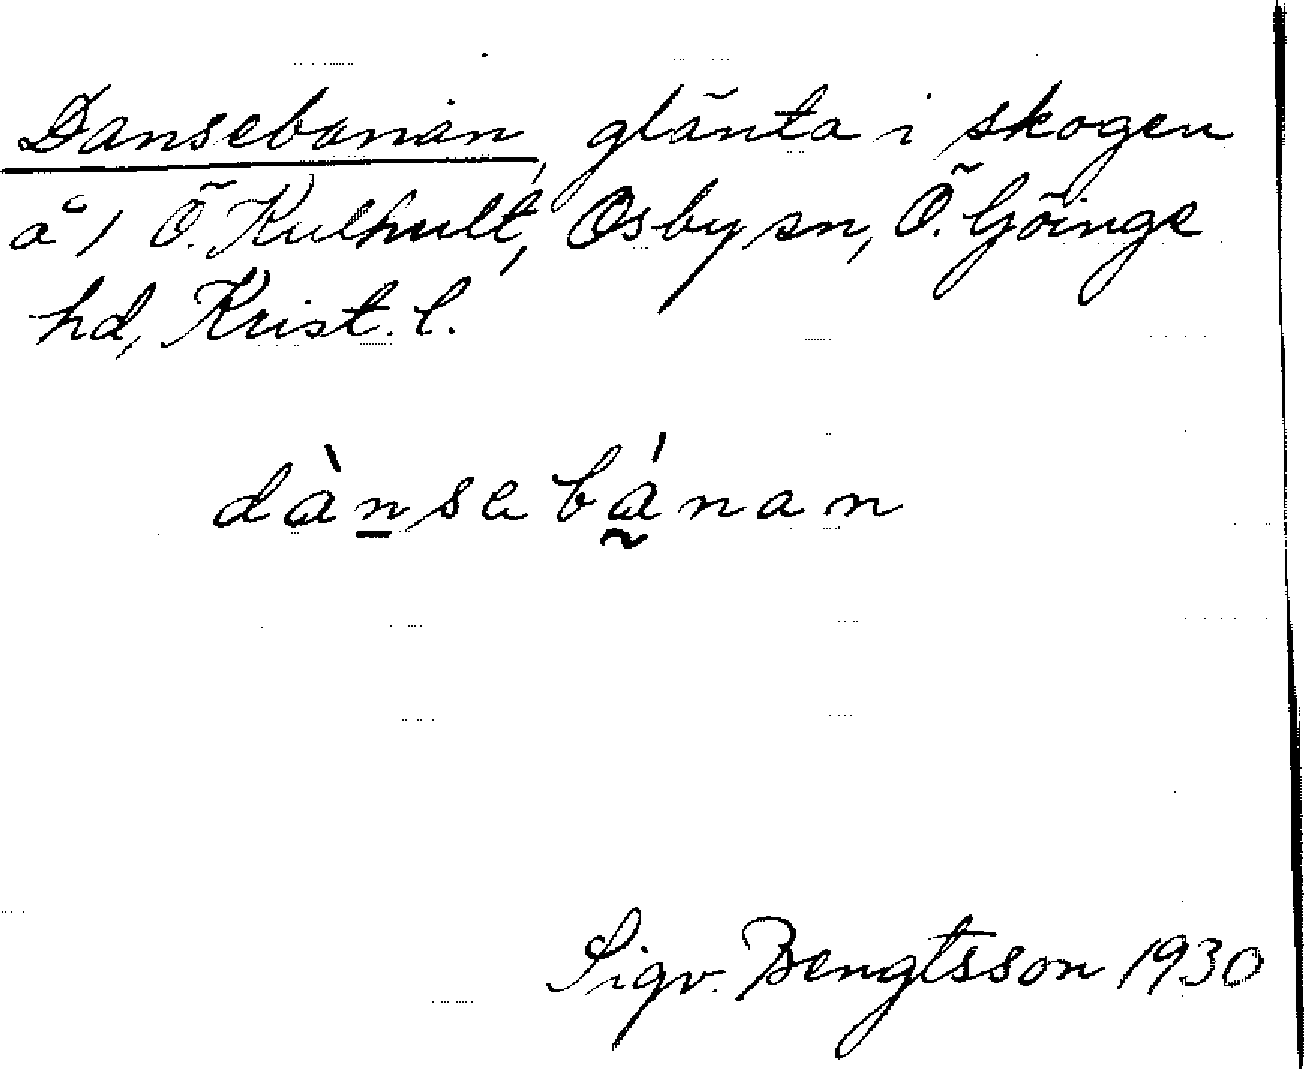 Dansebanan, glänta i skogen
å 1 Ö. Kulhult, Osby sn, Ö. Göinge
hd, Krist. l.
dànsebánan
Sigv. Bengtsson 1930